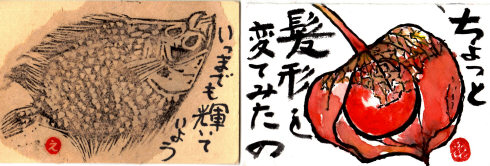 いつまでも輝いて
いよう
え
ちょっと
髪形を
変てみたの